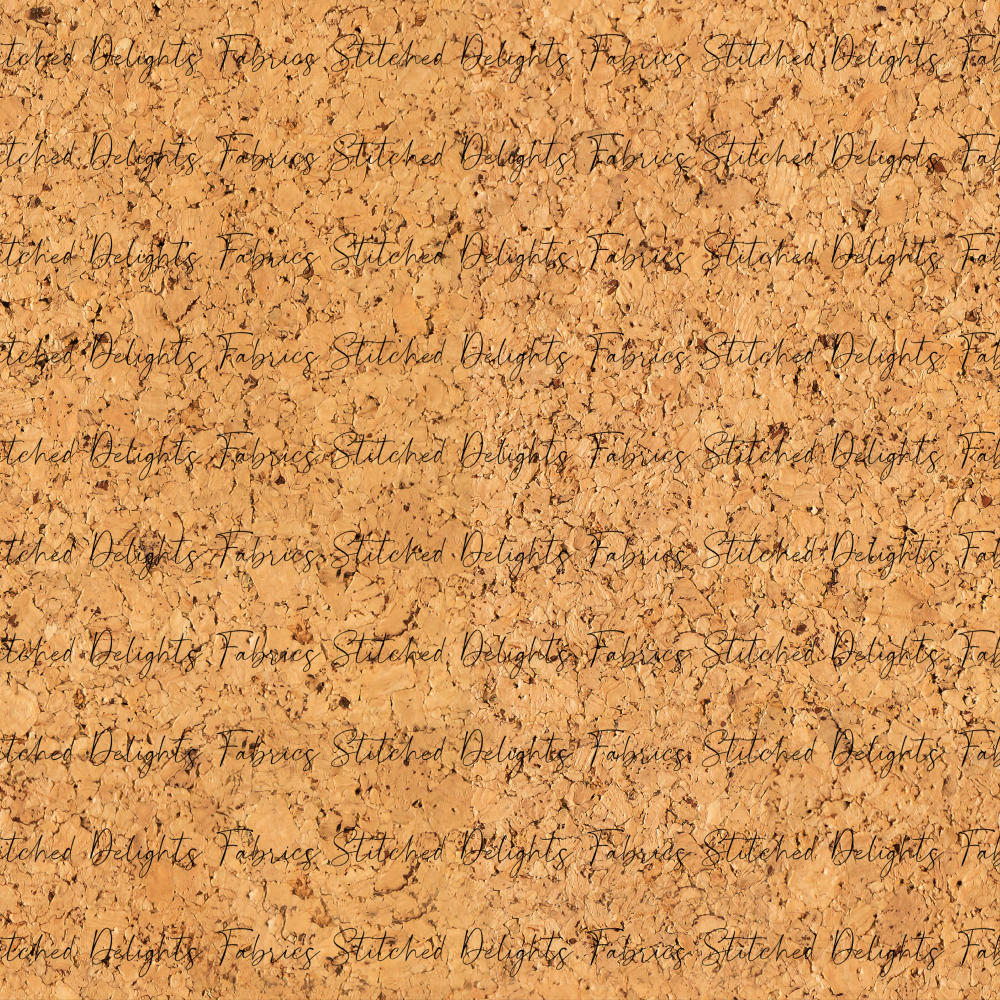 Stitched Delights Fabrics Stitched Delights Fabrics Stitched Delights Fab
Stitched Delights Fabrics Stitched Delights Fabrics Stitched Delights Fab
Stitched Delights Fabrics Stitched Delights Fabrics Stitched Delights Fab
Stitched Delights Fabrics Stitched Delights Fabrics Stitched Delights Fab
Stitched Delights Fabrics Stitched Delights Fabrics Stitched Delights Fab
Stitched Delights Fabrics Stitched Delights Fabrics Stitched Delights Fab
Stitched Delights Fabrics Stitched Delights Fabrics Stitched Delights Fab
Stitched Delights Fabrics Stitched Delights Fabrics Stitched Delights Fab
Stitched Delights Fabrics Stitched Delights Fabrics Stitched Delights Fab
Stitched Delights Fabrics Stitched Delights Fabrics Stitched Delights Fab